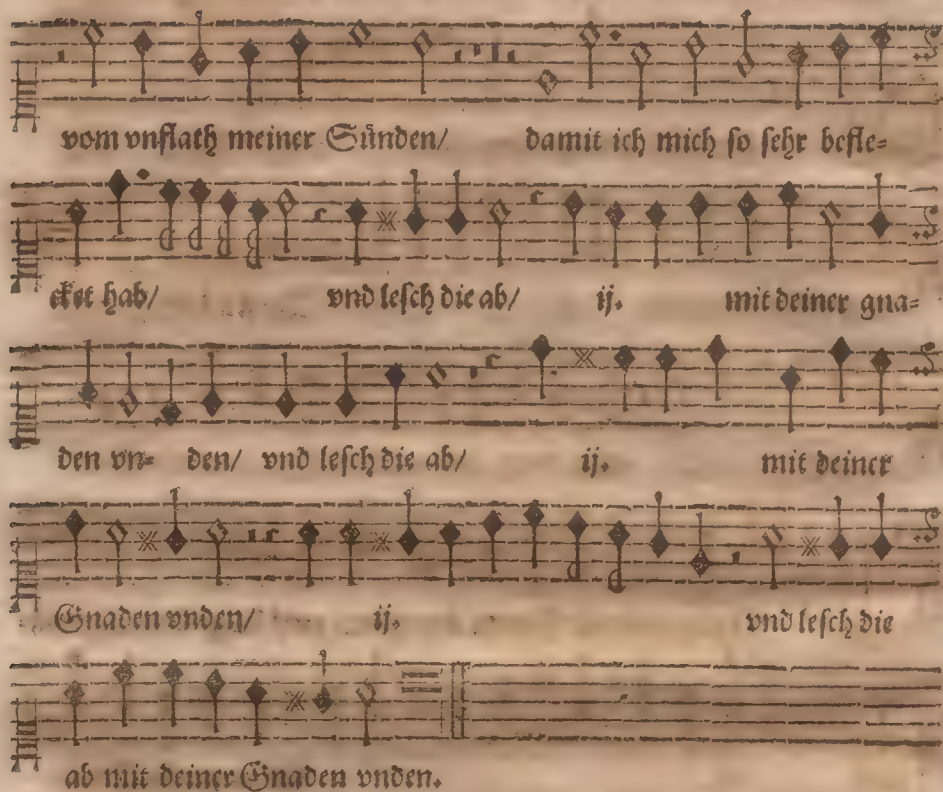 vom vnflath meiner Sünden/ damit ich mich so sehr befle-
cket hab/ vnd lesch die ab/ ij. mit deiner gna-
den vn- den/ vnd lesch die ab/ ij. mit deiner
Gnaden vnden/ ij. vnd lesch die
ab mit deiner Gnaden vnden.